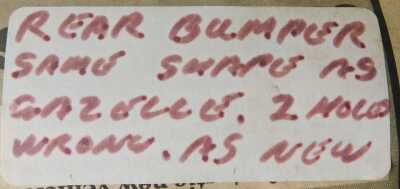 REAR BUMPER
SAME SHAPE AS
GAZELLE. 2 HOLES
WRONG. AS NEW